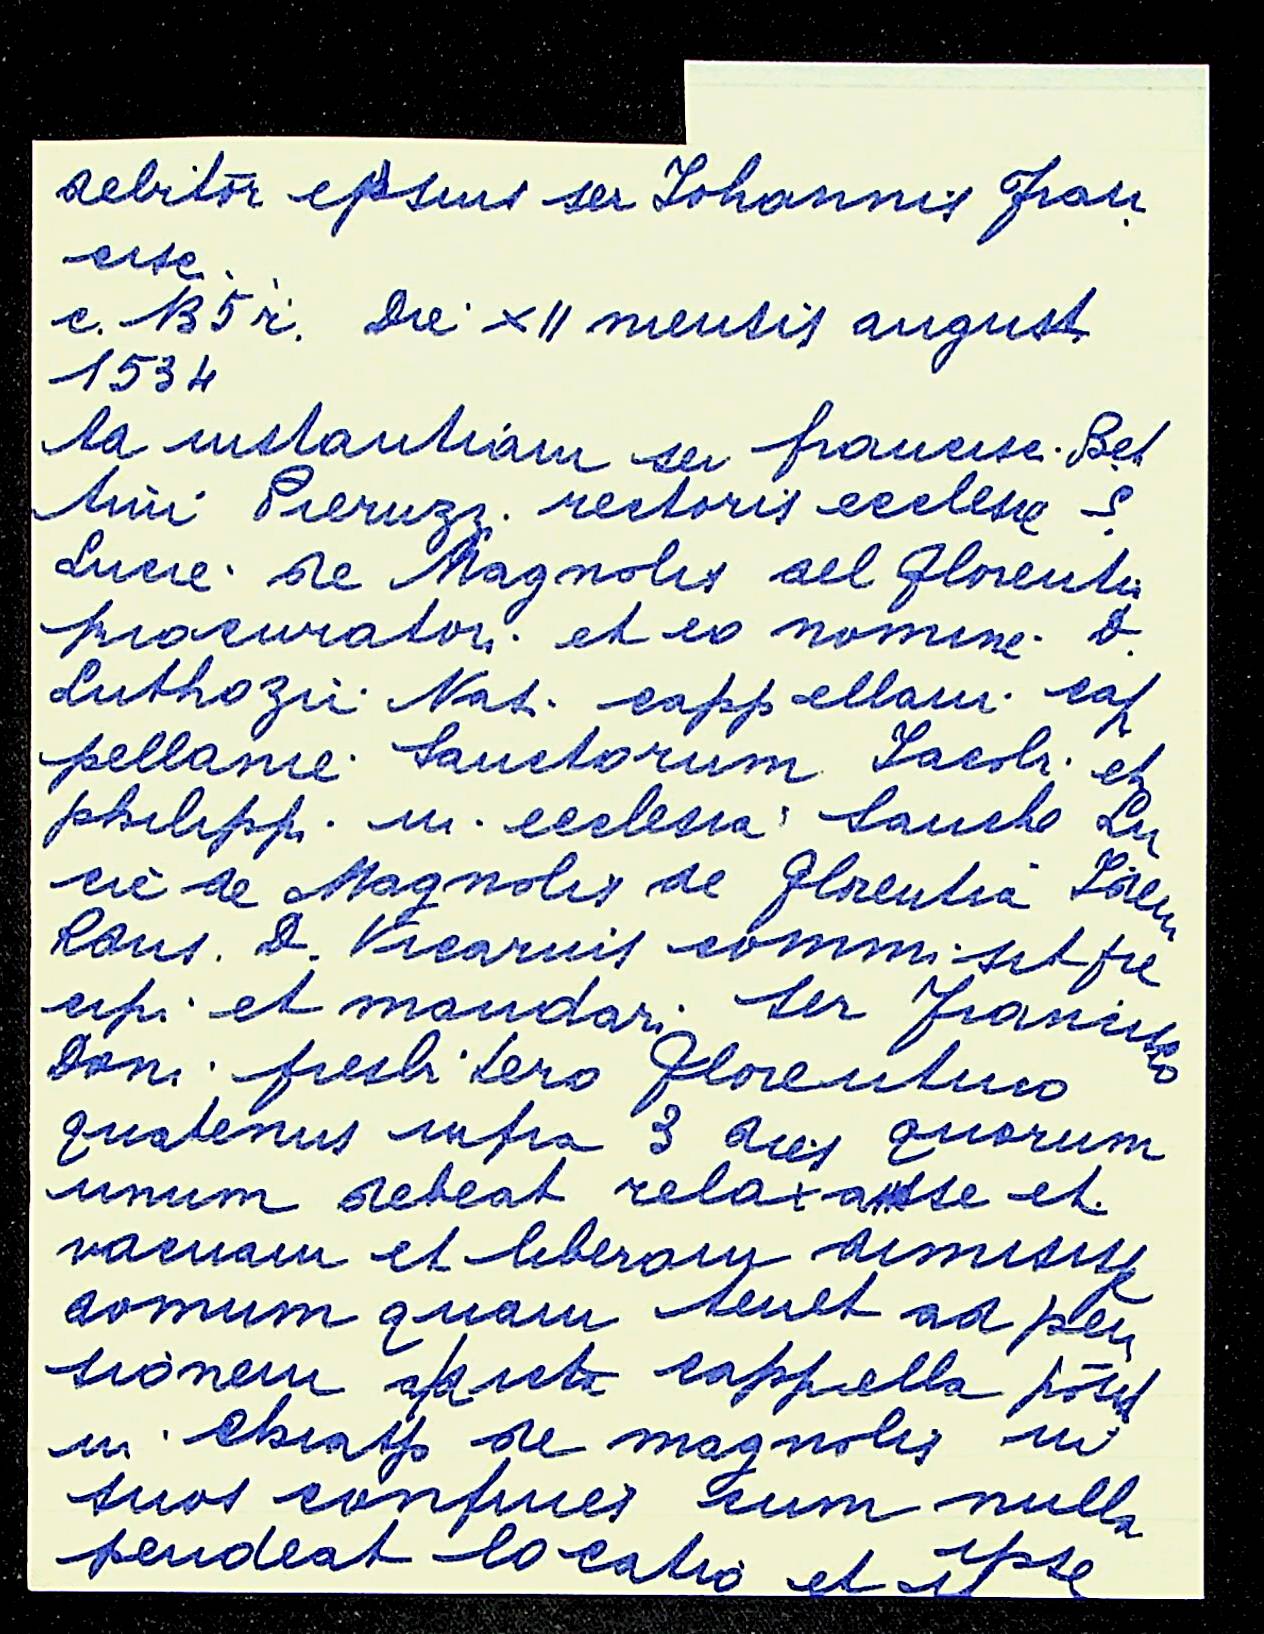 debitor ipsius ser Iohannis Fran
cisc.
c. 135 r. Die XII mensis august.
1534
ta instantiam ser francisc. Bet
tini Pieruzz. rectoris ecclesie S.
Lucie. de Magnolis del Florenti
procurator. et eo nomine. D.
Luthozii. Nas. cappellani. cap
pellanie. Sanctorum Iacob. et
philipp. in. ecclesia Sancte Lu
cie de Magnolis de Florentia
Rdus. D. Vicarius commisit pre
cipi. et mandari. ser Francisco
Dom. presbitero Florentino
quatenus infra 3 dies quorum
unum debeat relaxasse et.
vacuam et liberam dimisisse
domum quam tenet ad pen
sionem a dicta cappella posit
in. de magnolis in
suos confines cum nulla
pendeat locatio et ipse